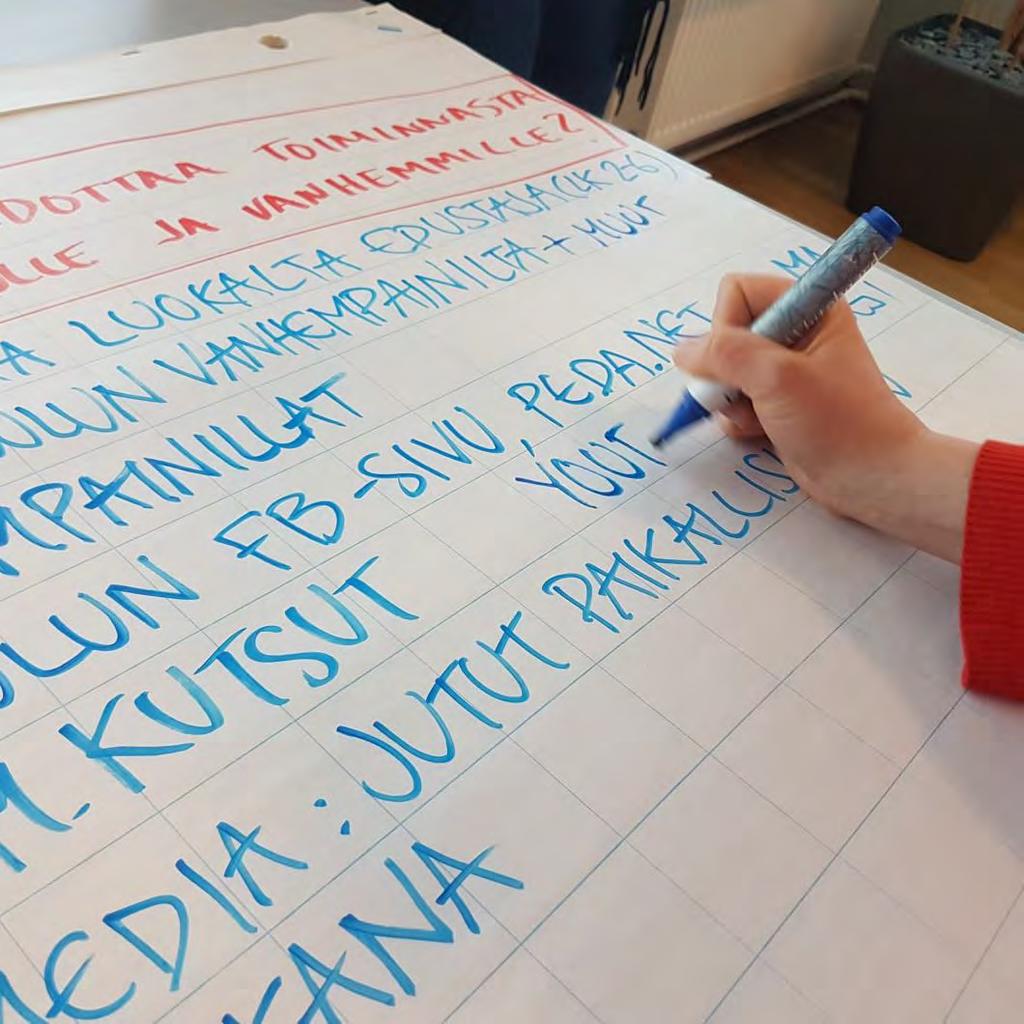 DOTTAA TOIMINNASTA
LLE JA VANHEMMILLE?
A LUOKALTA EDUSTAJA (LK 2-6)
ULUN VANHEMPAINILTA + MUUT
MPAINILLAT
LUN FB-SIVU, PEDA.NET MA
YOUT
M. KUTSUT
MEDIA: JUTUT PAIKALLIS
KANA